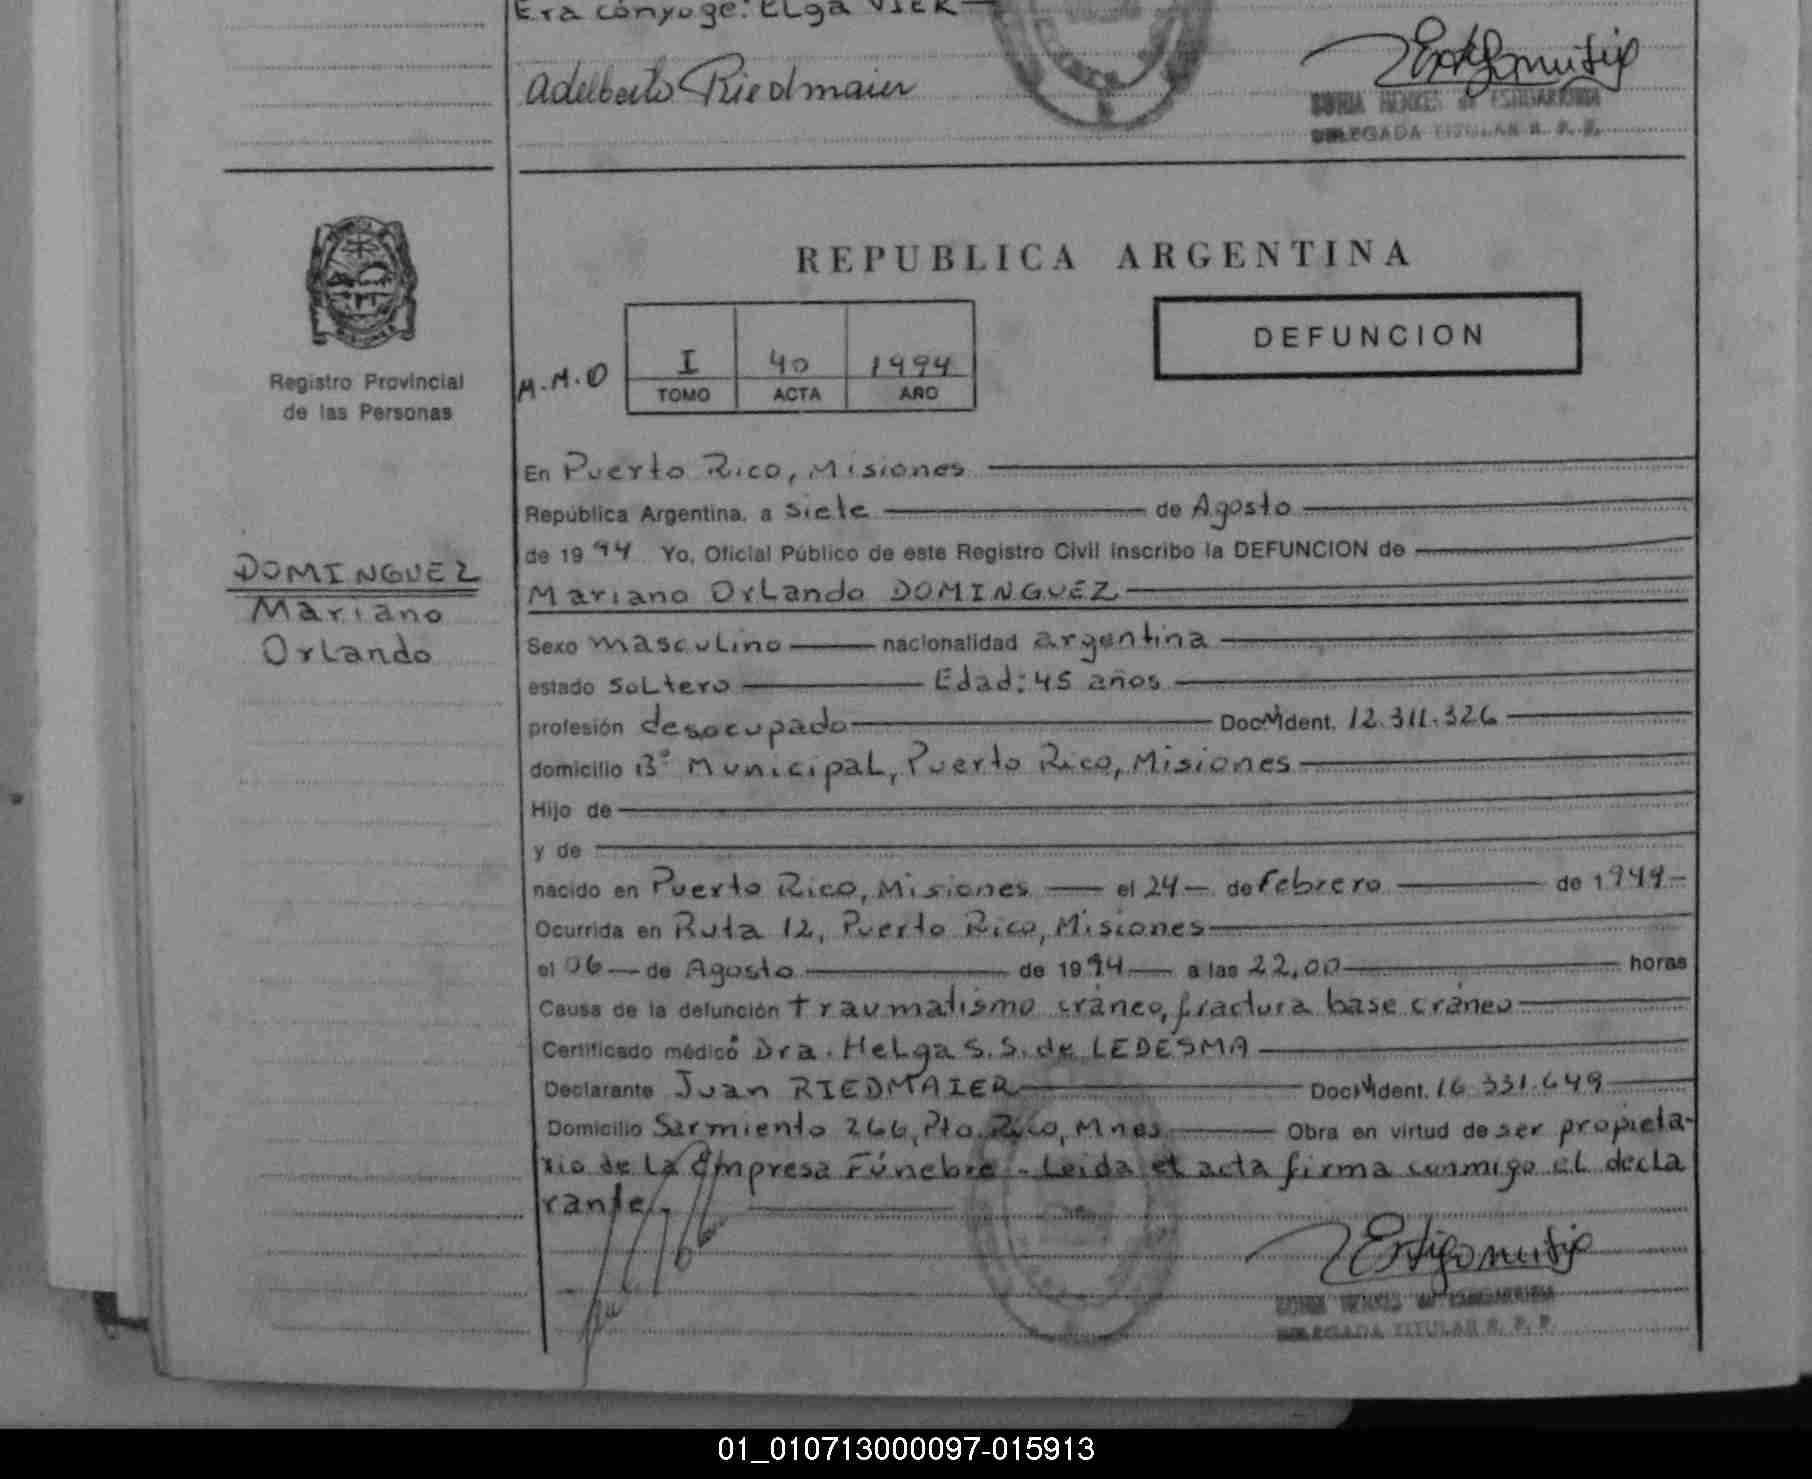 Era cónyuge: ELga VIER
Adelberto Riedmaier
DELEGADA TITULAR R. P. P.
REPUBLICA ARGENTINA
DEFUNCION
Registro Provincial
de las Personas
M.M.O
I 40 1994
TOMO ACTA AÑO
En Puerto Rico, Misiones
República Argentina, a siete de Agosto
de 1994 Yo, Oficial Público de este Registro Civil inscribo la DEFUNCION de
DOMINGUEZ
Mariano
Orlando
Mariano Orlando DOMINGUEZ
Sexo masculino nacionalidad argentina
estado soltero Edad: 45 años
profesión desocupado Doc. Ident. 12.311.326
domicilio B° Municipal, Puerto Rico, Misiones
Hijo de
y de
nacido en Puerto Rico, Misiones el 24 de Febrero de 1949
Ocurrida en Ruta 12, Puerto Rico, Misiones
el 06 de Agosto de 1994 a las 22,00 horas
Causa de la defunción traumatismo cráneo, fractura base cráneo
Certificado médico Dra. Helga S. S. de LEDESMA
Declarante Juan RIEDMAIER Doc. Ident. 16.331.649
Domicilio Sarmiento 266, Pto. Rico, Mnes Obra en virtud de ser propieta-
rio de la Empresa Fúnebre - Leída el acta firma conmigo el decla
rante.
DELEGADA TITULAR R. P. P.
01_010713000097-015913